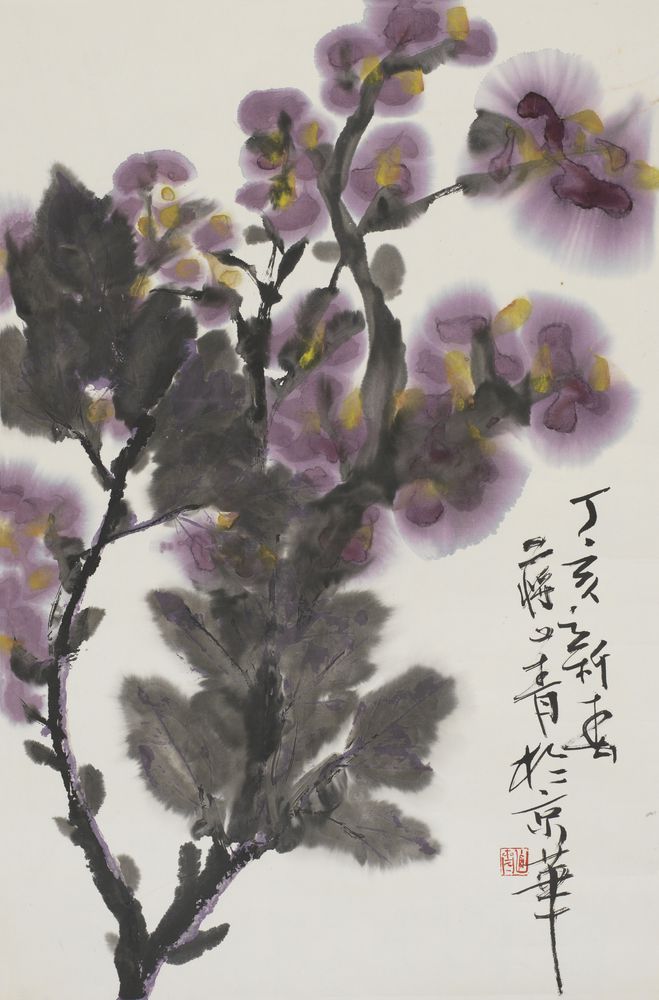 丁亥之新春
蔣山青於京華